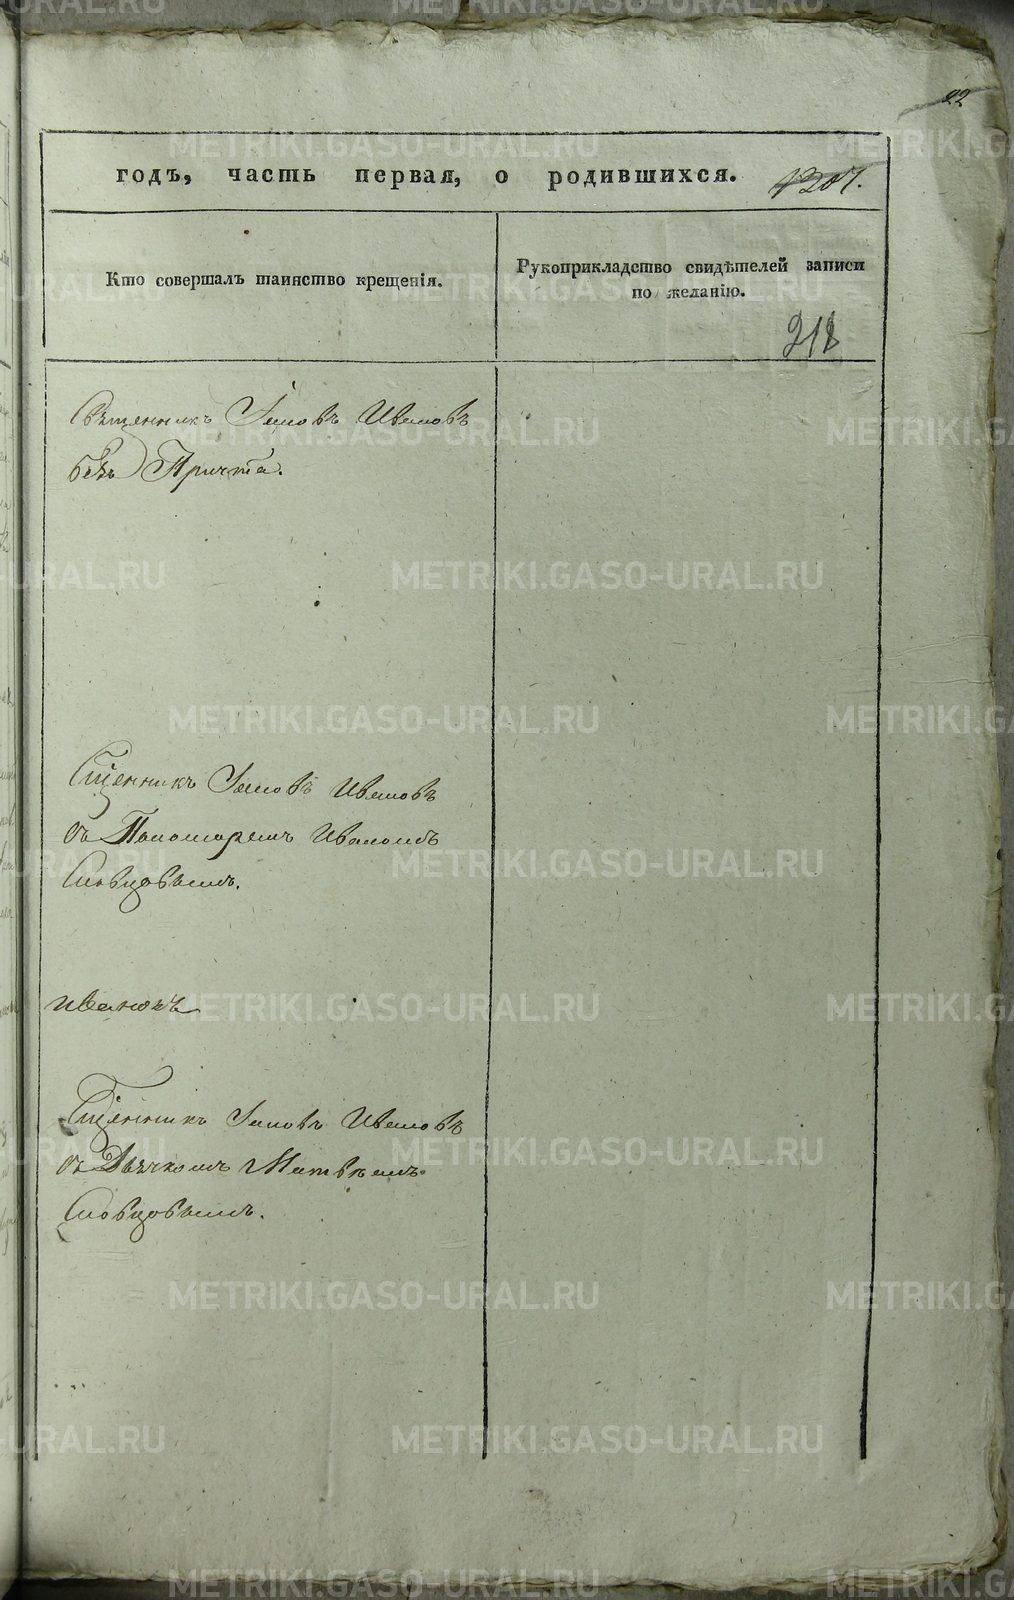 22
годъ, часть первая, о родившихся.
Кто совершалъ таинство крещенія.
Рукоприкладство свидѣтелей записи
по желанію.
218
Священникъ Іаковъ Ивановъ
безъ Причта.
Сщенникъ Іаковъ Ивановъ
съ Пономаремъ Иваномъ
Словцовымъ.
Сщенникъ Іаковъ Ивановъ
съ Дьячкомъ Матвѣемъ
Словцовымъ.
METRIKI.GASO-URAL.RU